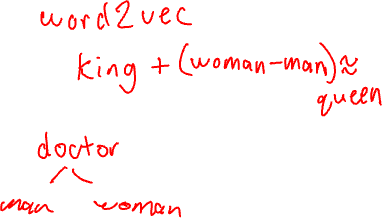 word2vec
king + (woman-man) ≈
queen
doctor
man woman